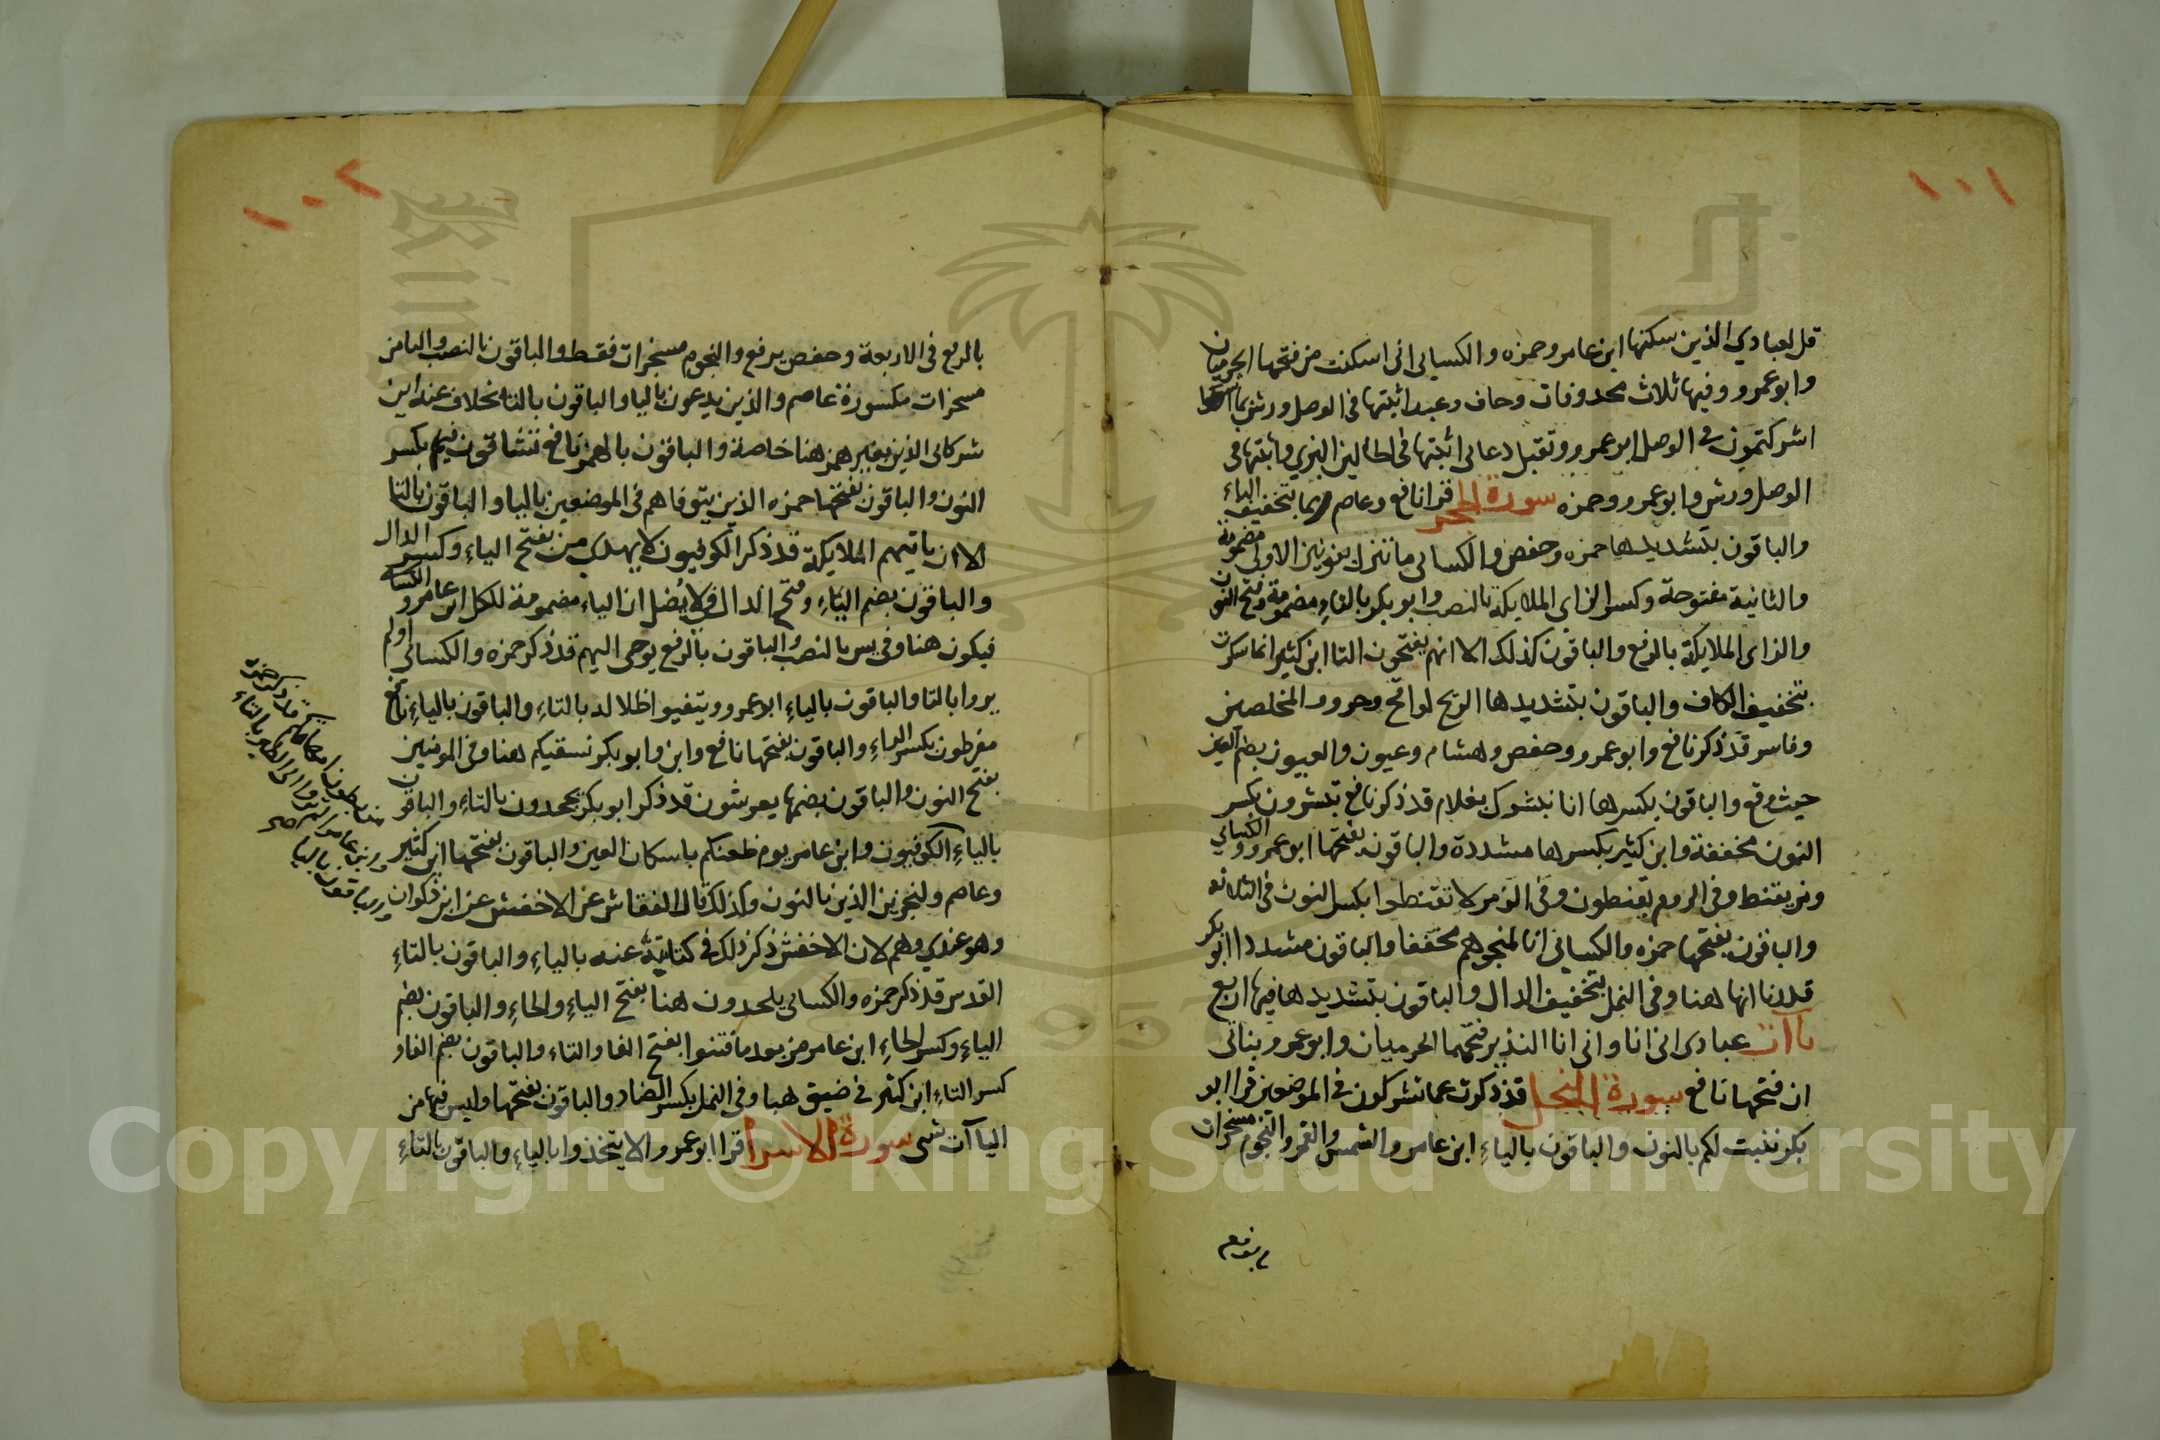 ١٠١
قل لعبادي الذين سكنها ابن عامر وحمزه والكسائي اني اسكنت من فتحها الحرميان
وابو عمرو وفيها ثلاث محدوفات وخاف وعيد اثبتها في الوصل ورش بما
اشركتمون في الوصل ابو عمرو وتقبل دعاي اثبتها في الحالين البزي واثبتها في
الوصل ورش وابو عمرو وحمزه سورة الحجر قرا نافع وعاصم ربما بتخفيف الباء
والباقون بتشديدها حمزه وحفص والكسائي ما ننزل بنونين الاولى مضمومة
والثانية مفتوحة وكسر الزاي الملايكة بالنصب وابو بكر بالتاء مضمومة وفتح النون
والزاي الملايكة بالرفع والباقون كذلك الا انهم يفتحون التا ابن كثير انما سكرت
بتخفيف الكاف والباقون بتشديدها الريح لواقح وحرو المخلصين
وفاسر قد ذكر نافع وابو عمرو وحفص وهشام وعيون والعيون بضم العين
حيث وقع والباقون بكسرها انا نبشرك بغلام قد ذكر نافع تبشرون بكسر
النون مخففة وابن كثير بكسرها مشددة والباقون بفتحها ابو عمرو والكسائي
ومن يقنط وفي الروم يقنطون وفي الزمر لا تقنطوا بكسر النون في الثلاثه
والباقون بفتحها حمزه والكسائي انا لمنجوهم مخففا والباقون مشددا ابو بكر
قدرنا انها هنا وفي النمل بتخفيف الدال والباقون بتشديدها فيها اربع
ياآت عبادي اني انا واني انا النذير فتحهما الحرميان وابو عمرو بناتي
ان فتحها نافع سورة النحل قد ذكرت عما تشركون في الموضعين قرا ابو
بكر ننبت لكم بالنون والباقون بالياء ابن عامر والشمس والقمر والنجوم مسخرات
١٠٢
بالرفع في الاربعة وحفص يرفع والنجوم مسخرات فقط والباقون بالنصب والتا من
مسخرات مكسورة عاصم والذين يدعون باليا والباقون بالتا بخلاف عنه اين
شركائي الذين بغير همز هنا خاصة والباقون بالهمز نافع تشاقون فيهم بكسر
النون والباقون بفتحها حمزه الذين يتوفاهم في الموضعين باليا والباقون بالتا
الا ان ياتيهم الملايكة قد ذكر الكوفيون لا يهدي من بفتح الياء وكسر الدال
والباقون بضم الياء وفتح الدال ولا يضل ان الياء مضمومة للكل ابن عامر والكسائي
فيكون هنا وفي يس بالنصب والباقون بالرفع يوحى اليهم قد ذكر حمزه والكسائي اولم
يروا بالتا والباقون بالياء ابو عمرو ويتفيوا ظلاله بالتاء والباقون بالياء نافع
مفرطون بكسر الراء والباقون بفتحها نافع وابن وابو بكر نسقيكم هنا وفي المومنين
بفتح النون والباقون بضمها يعرشون قد ذكر ابو بكر يجحدون بالتاء والباقون
بالياء الكوفيون وابن عامر يوم ظعنكم باسكان العين والباقون بفتحها ابن كثير
وعاصم ولنجزين الذين بالنون وكذلك قال النقاش عن الاخفش عن ابن ذكوان
وهو عندي وهم لان الاخفش ذكر ذلك في كتابه عنه بالياء والباقون بالتاء
القدس قد ذكر حمزه والكسائي يلحدون هنا بفتح الياء والحاء والباقون بضم
الياء وكسر الحاء ابن عامر من بعد ما فتنوا بفتح الفا والتاء والباقون بضم الفاء
كسر التاء ابن كثير في ضيق هنا وفي النمل بكسر الضاد والباقون بفتحها وليس فيها من
الياآت شي سورة الاسرا قرا ابو عمرو الا يتخذوا بالياء والباقون بالتاء